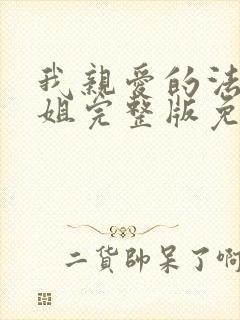 我親愛的法
姐完整版免
二貨帥呆了啊